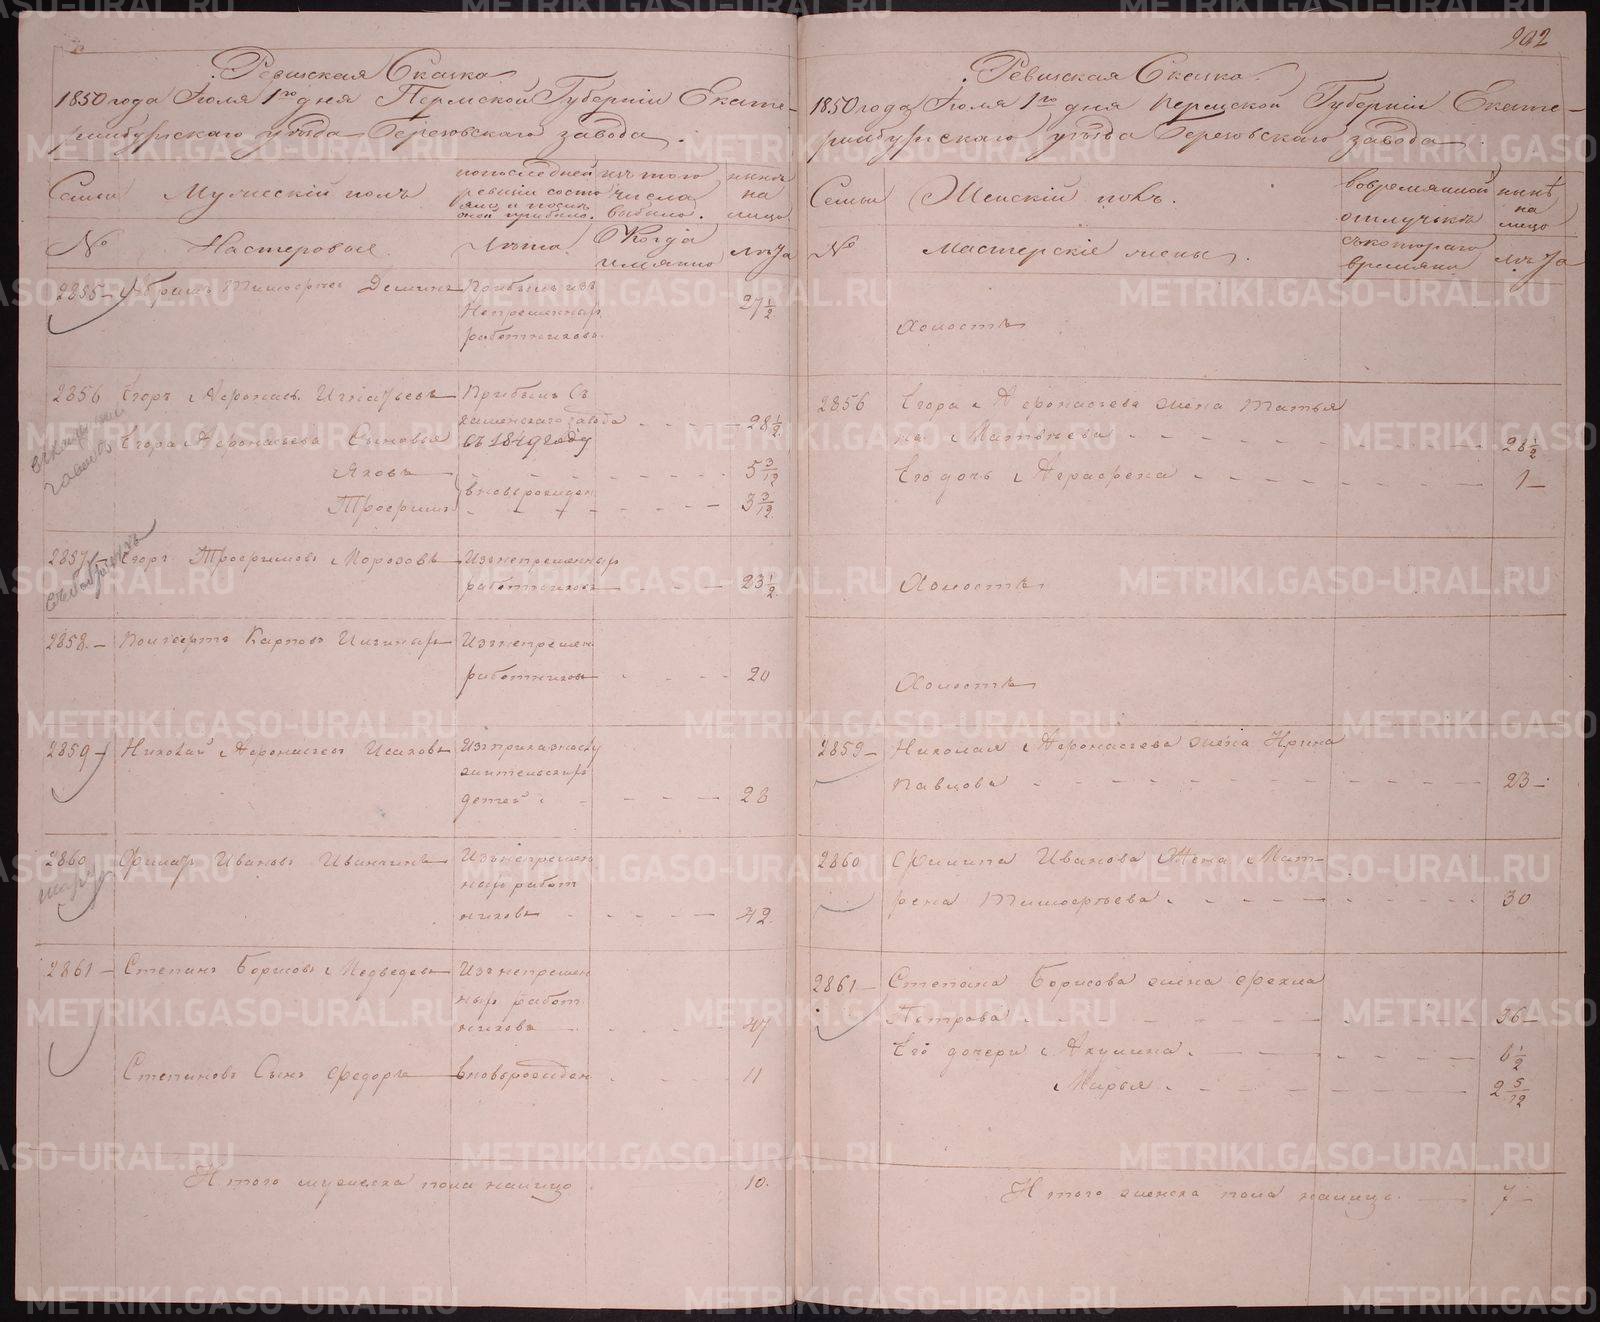 902
Ревизская Сказка
1850 года Июля 1го дня Пермской Губернии Екате-
ринбургского уезда Березовского завода.
Семьи
Мужеский полъ
по последней ревизіи состояло и после оной прибыло.
изъ того числа выбыло.
ныне на лицо
№
Мастеровые.
Лета
Когда имянно
лета
2855 Абрамъ Тимофеевъ Деминъ Прибылъ изъ
Непременных 27 1/2
работников.
2856 Егоръ Афонасьевъ Игнатьевъ Прибылъ съ
каменского завода 28 1/2
Егора Афонасьева Сыновья въ 1849 году
Яковъ 5 3/12
вновьрожден
Трофимъ 3 3/12
2857 Егоръ Трофимовъ Морозовъ Изъ непременных
работников 23 1/2
2858 Карповъ Изъ непремен
работников 20
2859 Николай Афонасьевъ Исаковъ Изъ приказнослу
жительских
детей 23
2860 Филипъ Ивановъ Ивинчинъ Изъ непремен
ных работ
никовъ 42
2861 Степанъ Борисовъ Медведевъ Изъ непремен
ных работ
никовъ 47
Степановъ Сынъ Федоръ вновьрожден 11
Итого мужеска пола налицо 10.
Ревизская Сказка.
1850 года Июля 1го дня Пермской Губерніи Екате-
ринбургского уезда Березовского завода.
Семьи
Женскій полъ.
во временной отлучкѣ
нынѣ на лицо
№
Мастерскіе жены.
съ которого времяни
лета
Холостъ
2856 Егора Афонасьева жена Татья
на Матвеева 28 1/2
Его дочь Аграфена 1
Холостъ
Холостъ
2859 Николая Афонасьева жена Ирина
Павлова 23
2860 Филипа Иванова Жена Мат-
рена Тимофеева 30
2861 Степана Борисова жена Фекла
Петрова 36
Его дочери Акулина 6 1/2
Марья 2 5/12
Итого женска пола налицо 7
METRIKI.GASO-URAL.RU